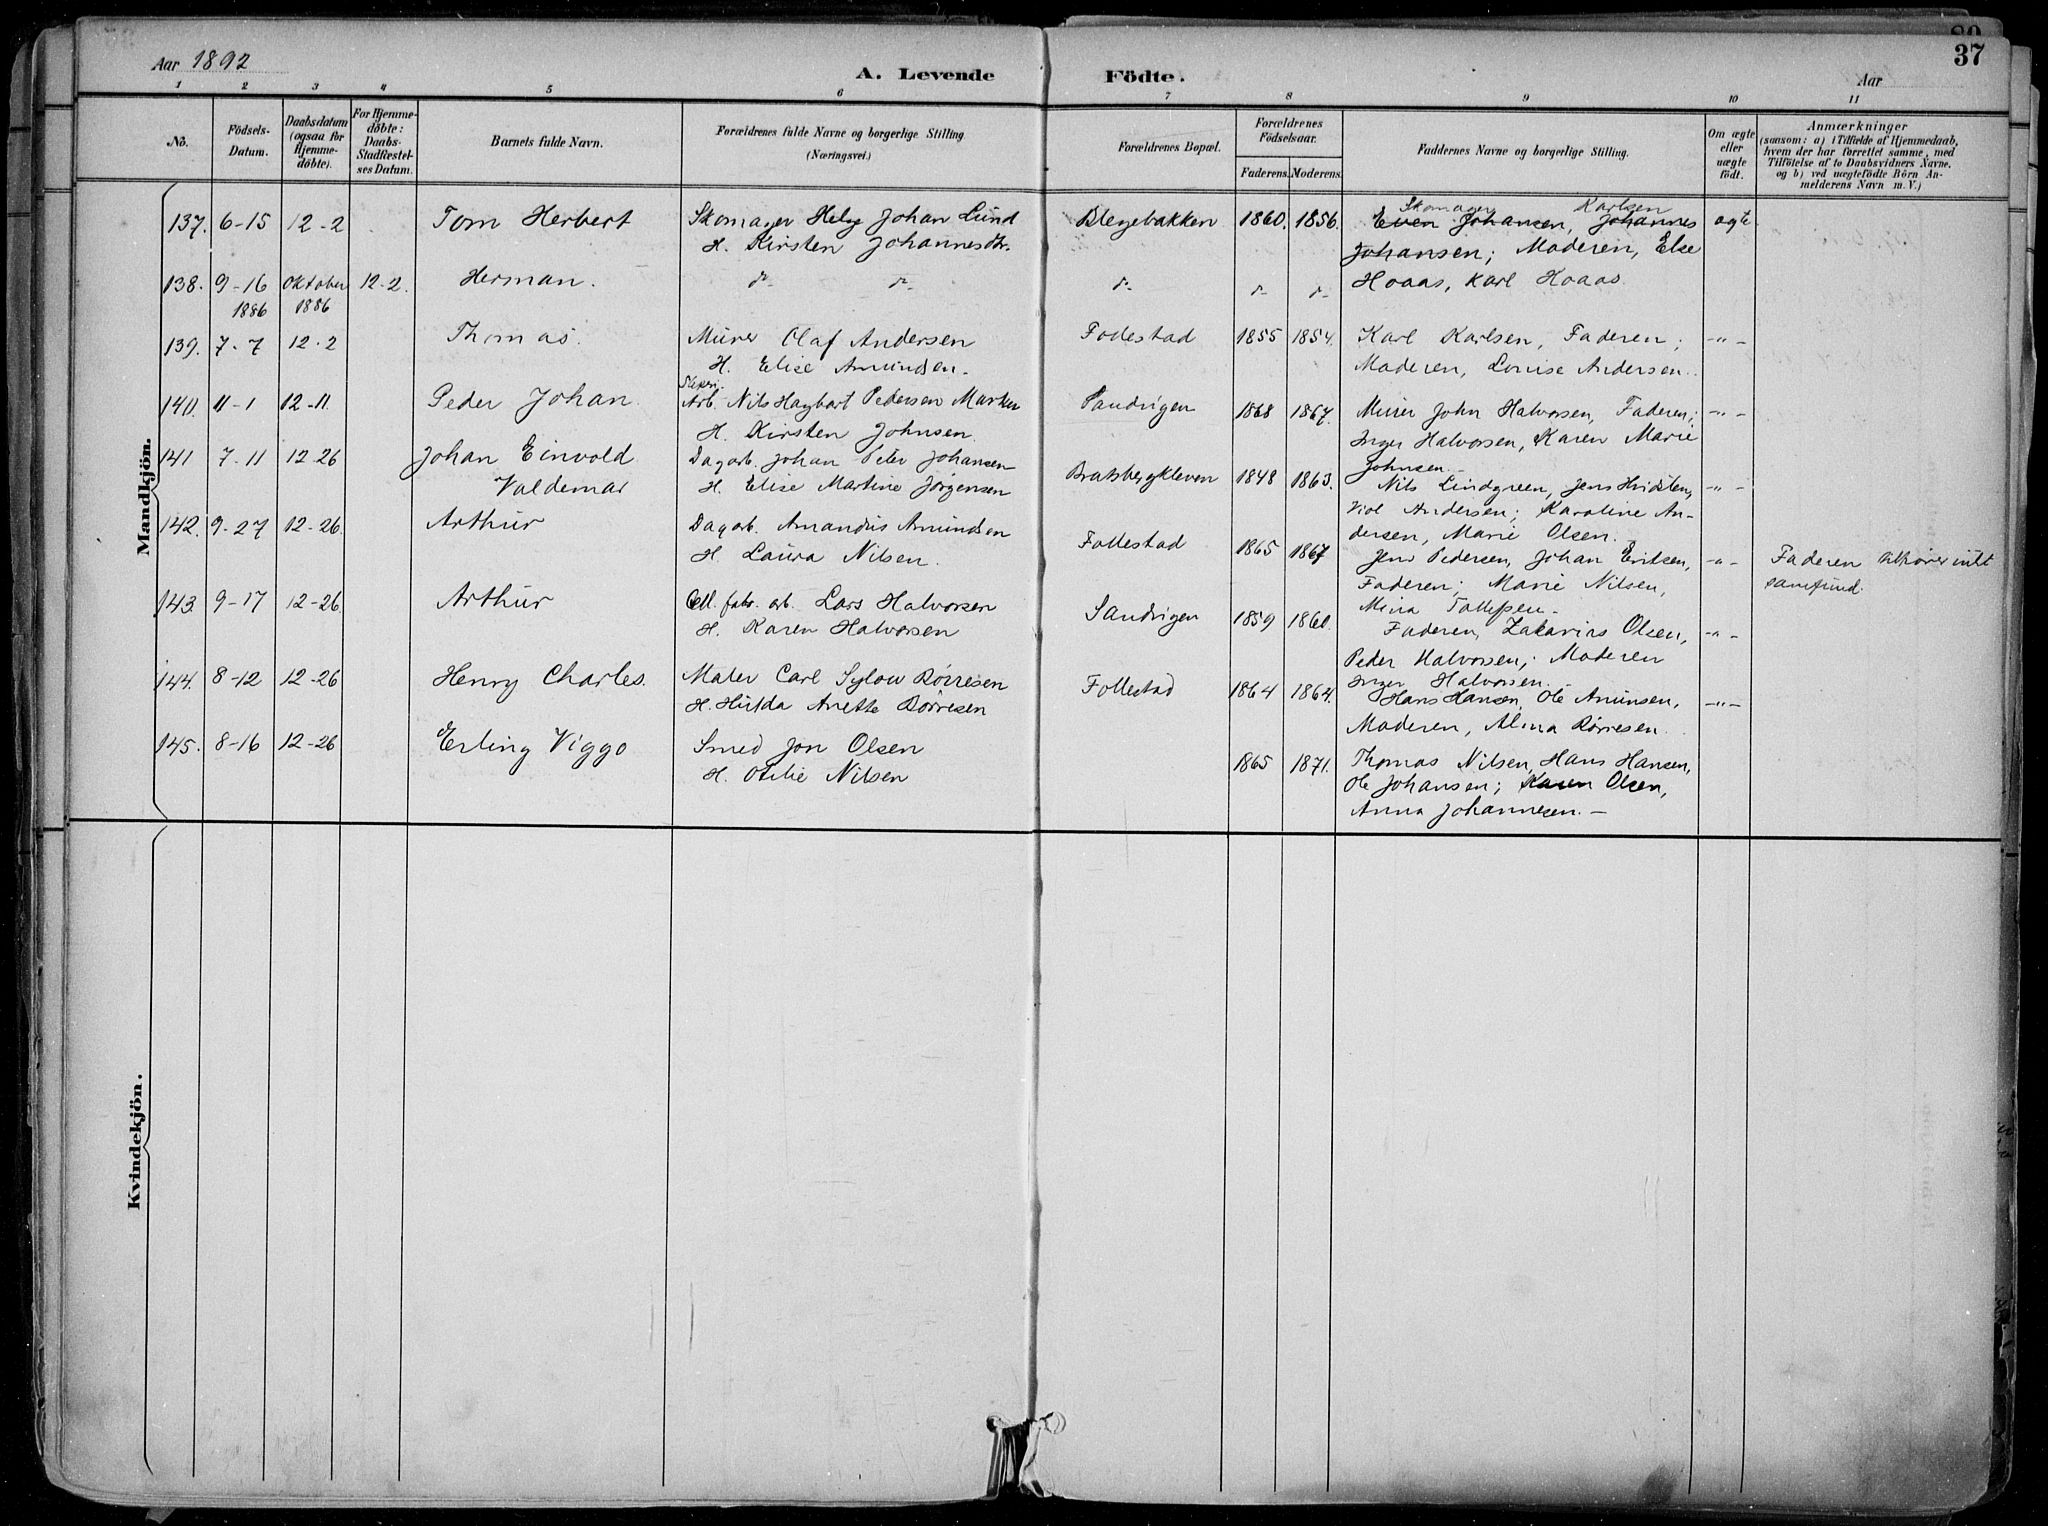 37
Aar 1892
A. Levende Födte.
Aar
1 2 3 4 5 6 7 8 9 10 11
No.
Födsels-
Datum.
Daabsdatum
(ogsaa for
Hjemme-
döbte).
For Hjemme-
döbte:
Daabs-
Stadfæstel-
ses Datum.
Barnets fulde Navn.
Forældrenes fulde Navne og borgerlige Stilling
(Næringsvei.)
Forældrenes Bopæl.
Forældrenes
Födselsaar.
Faderens. Moderens.
Faddernes Navne og borgerlige Stilling.
Om ægte
eller
uægte
födt.
Anmærkninger
(saasom: a) i Tilfælde af Hjemmedaab,
hvem der har forrettet samme, med
Tilföielse af to Daabsvidners Navne.
og b) ved uægtefödte Börn An-
melderens Navn m. V.)
Mandkjön.
137. 6-15 12-2 Tom Herbert Skomager Helge Johan Lund Blegebakken 1860. 1856. Even Johansen, Johannes ægte
Skomager Karlsen
H. Kirsten Johannesdtr. Johansen; Moderen, Else
138. 9-16 Oktober 12-2. Herman. d- d- d- d- d- Hoaas, Karl Hoaas.
1886 1886
139. 7-7 12-2 Thomas. Murer Olaf Andersen Follestad 1855 1854. Karl Karlsen, Faderen; -"-
H. Elise Amundsen. Moderen, Louise Andersen.
140. 11-1 12-11. Peder Johan. Arb. Nils Hagbart Pedersen Marker Sandvigen 1868 1867. Murer John Halvorsen, Faderen; -"-
H. Kirsten Johnsen. Inger Halvorsen, Karen Marie
Johnsen.
141 7-11 12-26 Johan Einvold Dagarb. Johan Peter Johansen Bratsbergkleven 1848 1863. Nils Lindgreen, Jens Hvidsten, -"-
Valdemar H. Elise Martine Jørgensen Andersen; Karoline An-
dersen, Marie Olsen.
142. 9-27 12-26. Arthur Dagarb. Amandus Amundsen Follestad 1865 1867 Jens Pedersen, Johan Eriksen, -"- Faderen
H. Laura Nilsen. Faderen; Marie Nilsen, samfund.
Mina Tollefsen.
143. 9-17 12-26. Arthur Cell. fabr. arb. Lars Halvorsen Sandvigen 1859 1860. Faderen, Zakarias Olsen, -"-
H. Karen Halvorsen Peder Halvorsen; Moderen
Inger Halvorsen.
144. 8-12 12-26 Henry Charles. Maler Carl Sylow Börresen Follestad 1864 1864. Hans Hansen, Ole Amunsen, -"-
H. Hulda Anette Börresen Moderen, Alma Börresen.
145. 8-16 12-26 Erling Viggo Smed Jon Olsen 1865 1871. Thomas Nilsen, Hans Hansen,
H. Otilie Nilsen Ole Johansen; Karen Olsen,
Anna Johannesen.-
Kvindekjön.